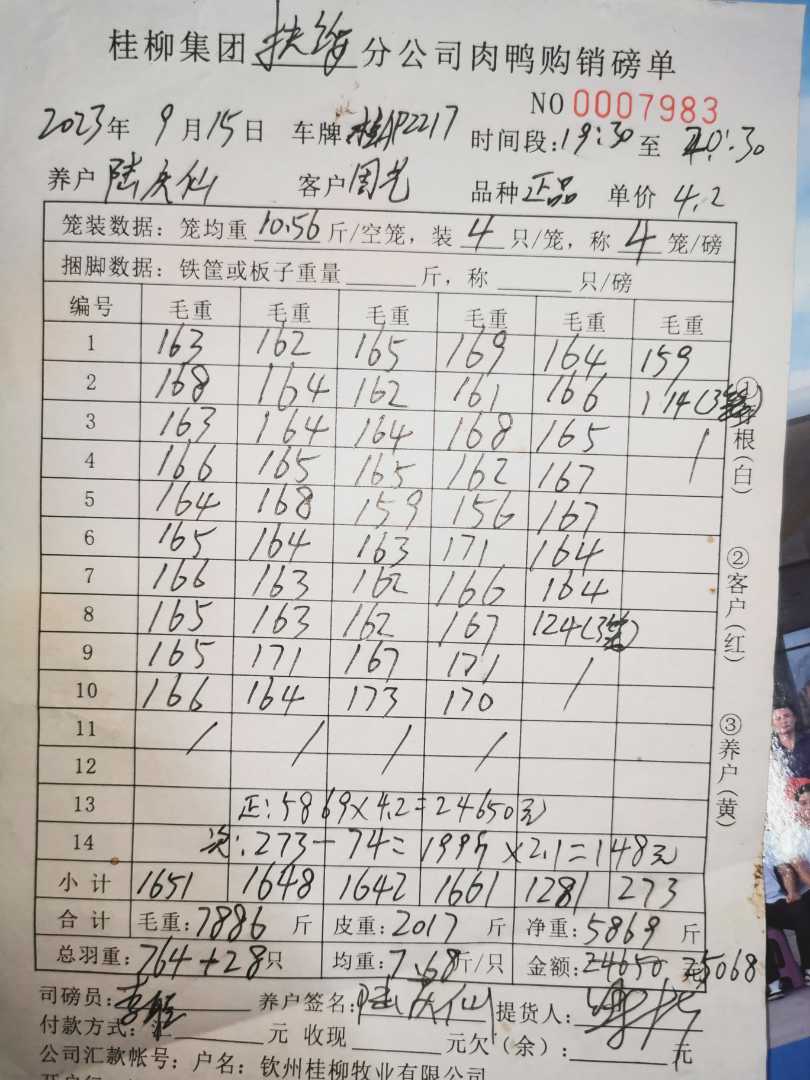 桂柳集团 扶绥 分公司肉鸭购销磅单
NO 0007983
2023年 9月15日 车牌:桂AP2217 时间段:19:30 至 20:30
养户 陆庆仙 客户 周艺 品种 正品 单价 4.2
笼装数据：笼均重 10.56 斤/空笼，装 4 只/笼，称 4 笼/磅
捆脚数据：铁筐或板子重量 斤，称 只/磅
编号 毛重 毛重 毛重 毛重 毛重 毛重
1 163 162 165 169 164 159
2 168 164 162 161 166 114(3笼)
3 163 164 164 168 165 /
4 166 165 165 162 167
5 164 168 159 156 167
6 165 164 163 171 164
7 166 163 162 166 164
8 165 163 162 167 124(3笼)
9 165 171 167 171 /
10 166 164 173 170
11 / / / /
12
13 正:5869×4.2=24650元
14 次:273-74=199斤×2.1=148元
小计 1651 1648 1642 1661 1281 273
合计 毛重:7886 斤 皮重:2017 斤 净重:5869 斤
总羽重:764+28只 均重:7.68斤/只 金额:24650 25068
司磅员: 养户签名:陆庆仙 提货人:
付款方式: 元 收现 元欠（余）: 元
公司汇款帐号：户名：钦州桂柳牧业有限公司
①存根(白)
②客户(红)
③养户(黄)